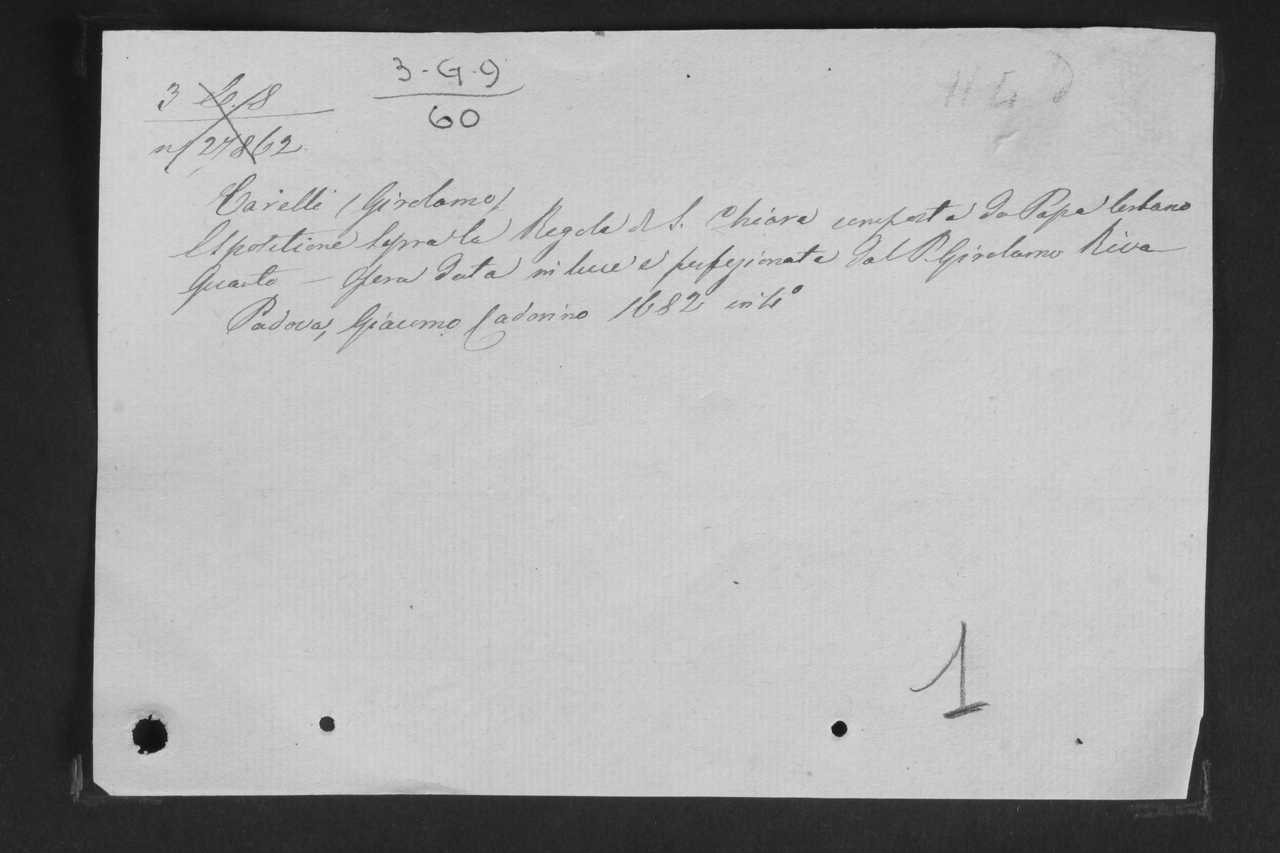 3 Lo. 18
3-G-9
60
n/ 27862
Carelli (Girolamo)
Espositione sopra la Regola di S. Chiara composta da Papa Urbano
Quarto — Opera data in luce e perfezionata dal P. Girolamo Riva
Padova, Giacomo Cadorino 1682 in 4°
1